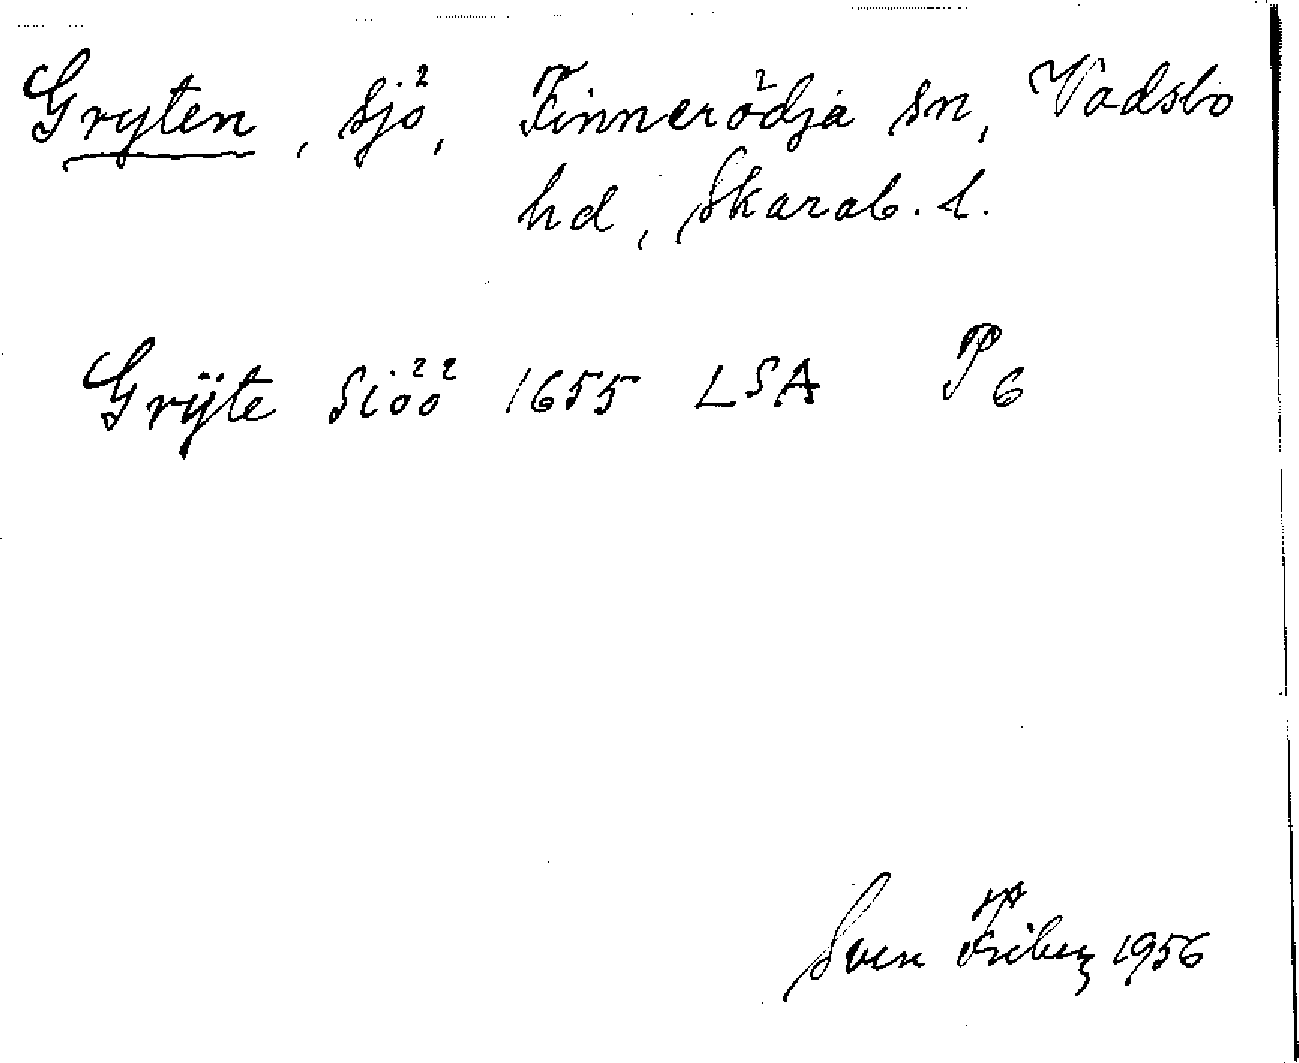 Gryten, sjö, Finnerödja sn, Vadsbo
hd, Skarab. l.
Grÿte Siöö 1655 LSA P6
Sven Friberg 1956